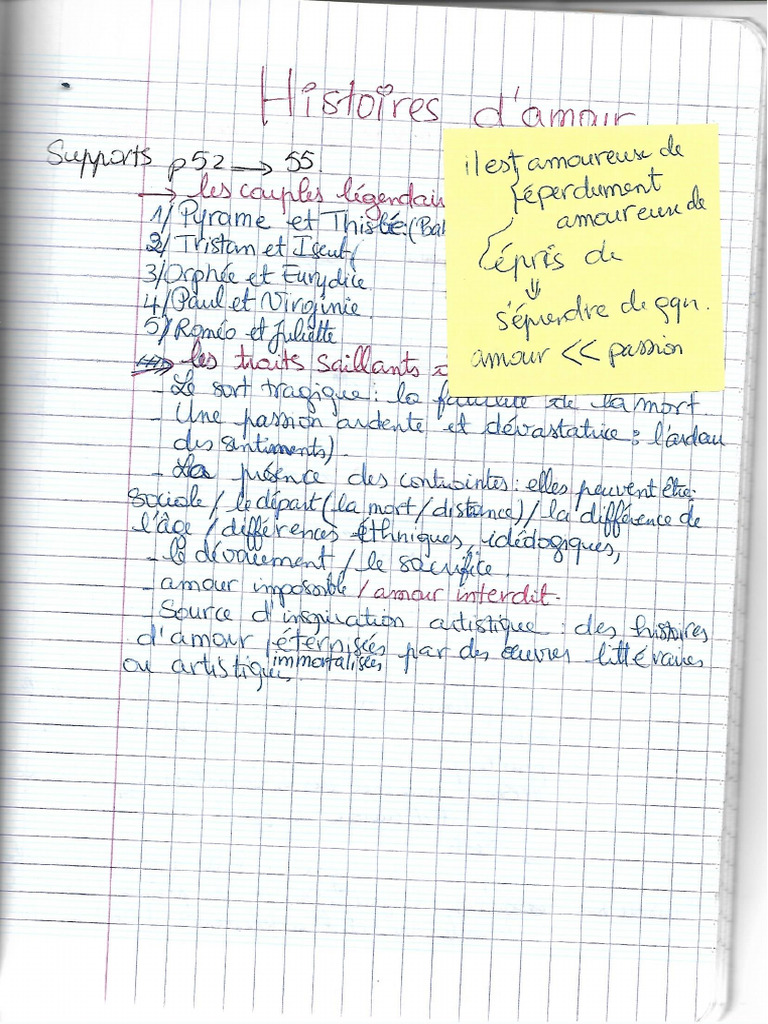 Histoires d'amour
Supports p52 → 55
→ les couples légendai
1/ Pyrame et Thisbé (Bab
2/ Tristan et Iseut (
3/ Orphée et Eurydice
4/ Paul et Virginie
5/ Roméo et Juliette
⇒ les traits saillants
- Le sort tragique : la fatalité de la mort.
- Une passion ardente et dévastatrice : l'ardeur
des sentiments).
- La présence des contraintes : elles peuvent être
sociale / le départ (la mort / distance) / la différence de
l'âge / différences éthniques, idéologiques,
- le dévouement / le sacrifice
- amour impossible / amour interdit.
- Source d'inspiration artistique : des histoires
d'amour éternisées par des œuvres littéraires
immortalisées
ou artistiques
il est amoureux de
éperdument
amoureux de
épris de
⇓
s'éprendre de qqn.
amour << passion